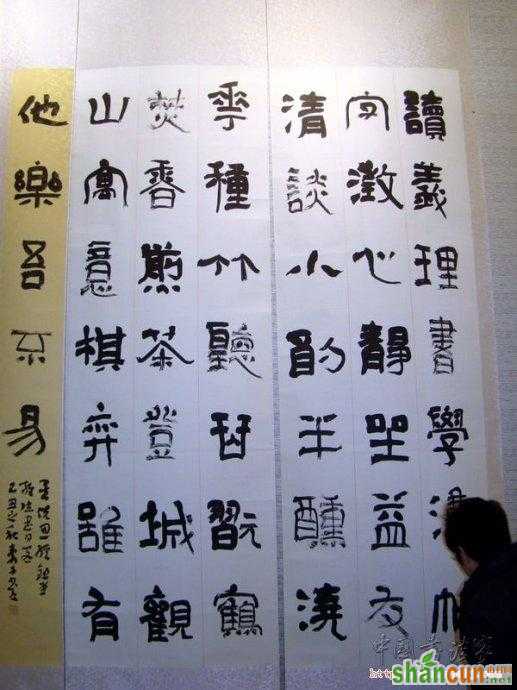 讀義理書學
字澂心靜坐益友
清談小酌半醺澆
花種竹聽琴翫鶴
焚香煎茶登城觀
山寓意棋弈雖有
他樂吾不易
shancun